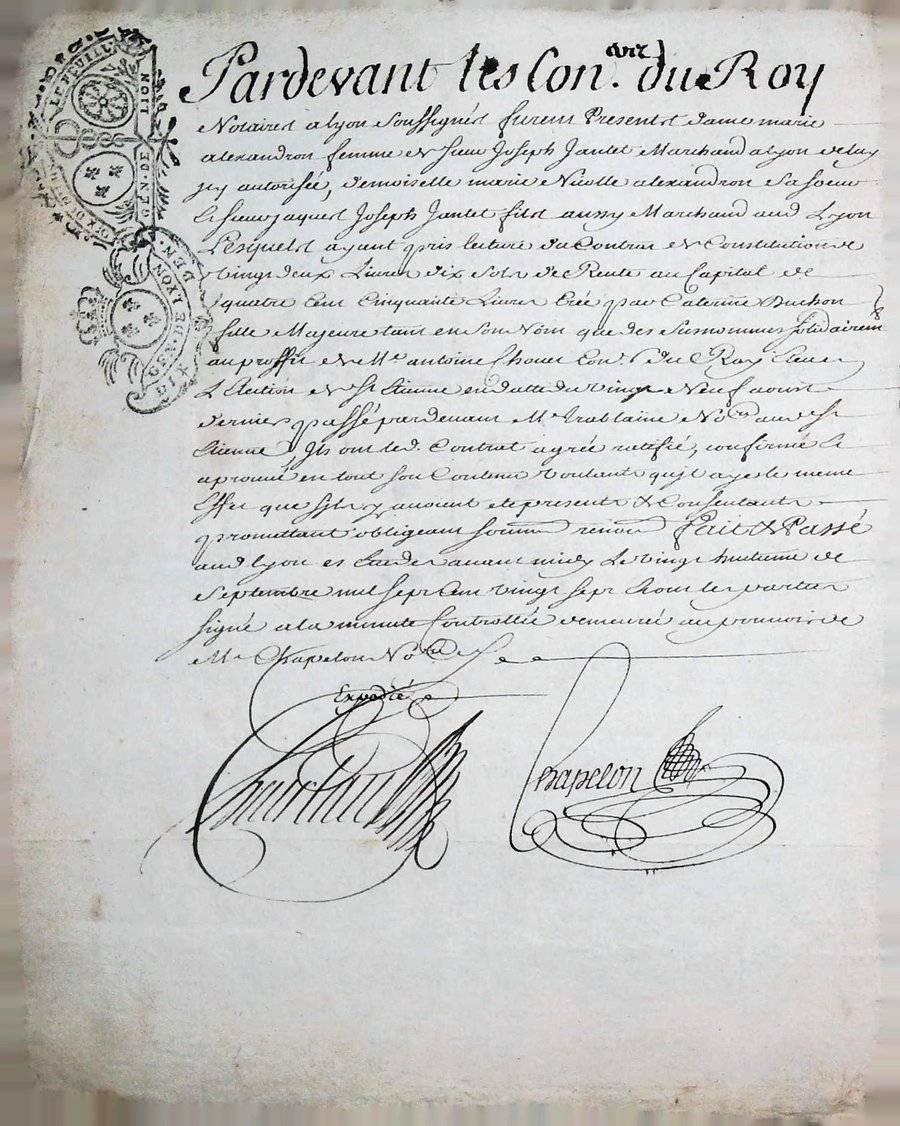 LE FEUILL
GEN. DE LION
GEN. DE LYON
SIX DEN.
Pardevant les Con.ers du Roy
Notaires a Lyon Soussignés furent Presents dame marie
alexandron femme de sieur Joseph Jantet Marchand a Lyon de luy
icy autorisée, demoiselle marie Nicolle alexandron sa soeur
Le sieur jaques Joseph Jantet fils aussy Marchand aud Lyon
Lesquels ayant pris lecture du Contrat de Constitution de
vingt deux Livres dix sols de Rente au Capital de
quatre Cent Cinquante Livres Créé par Caterine Duchon
fille Majeure tant en son Nom que des susnommes solidairemt
au proffit de Mre antoine Con.er du Roy
L'Election de St Etienne en datte du vingt Neuf aoust
dernier passé pardevant Me Not.re aud St
Etienne, Ils ont led. Contrat agréé ratifié, confirmé &
aprouvé en tout son Contenu voulant qu'il aye le meme
Effet que s'ils y avoient eté presents & Consentants
promettant obligeant renon Fait & Passé
aud Lyon es Etudes avant midy Le vingt huitieme de
Septembre mil sept Cent vingt sept les parties
signé a la minute Controllée demeurée au pouvoir de
Me Chapelon No.re
Expedié
Chapelon